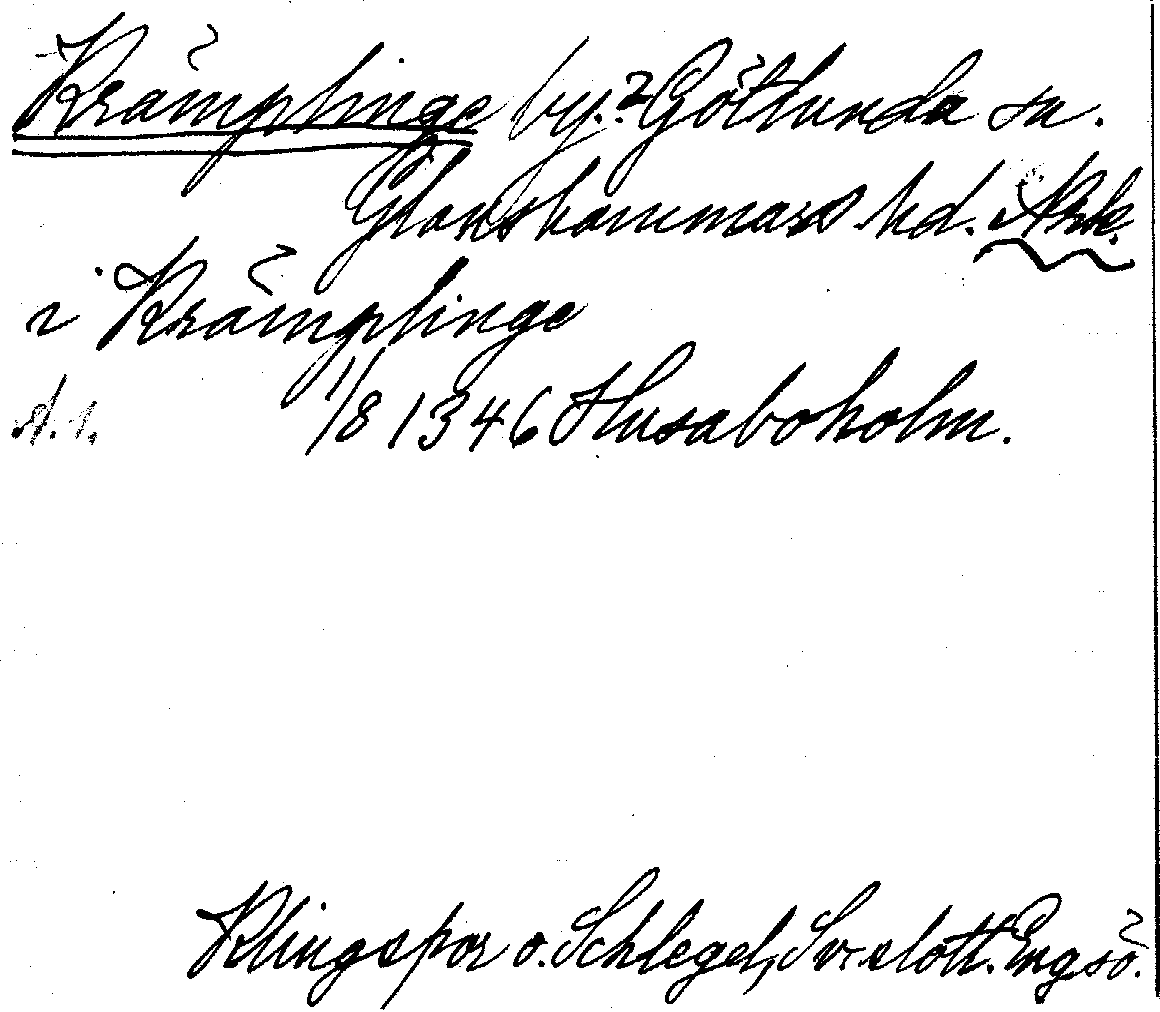 Krämplinge by.? Götlunda sn.
Glanshammars hd. Nrk.
i Krämplinge
A. 1. 1/8 1346 Husaboholm.
Klingspor o. Schlegel, Sv. slott. Engsö.